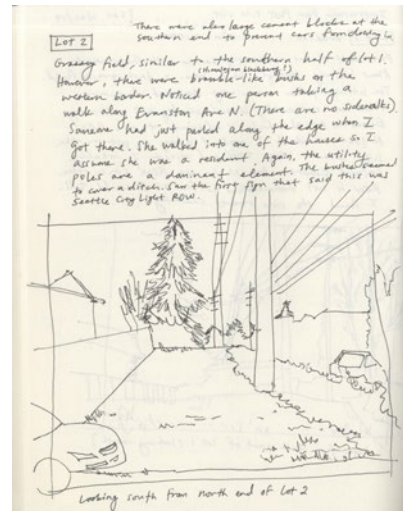 There were also large cement blocks at the
southern end to prevent cars from driving in.
Lot 2
Grassy field, similar to the southern half of Lot 1.
(Himalayan blackberry?)
However, there were bramble-like bushes on the
western border. Noticed one person taking a
walk along Evanston Ave N. (There are no sidewalks).
Someone had just parked along the edge when I
got there. She walked into one of the houses so I
assume she was a resident. Again, the utility
poles are a dominant element. The bushes seemed
to cover a ditch. Saw the first sign that said this was
Seattle City Light ROW.
Looking south from north end of Lot 2